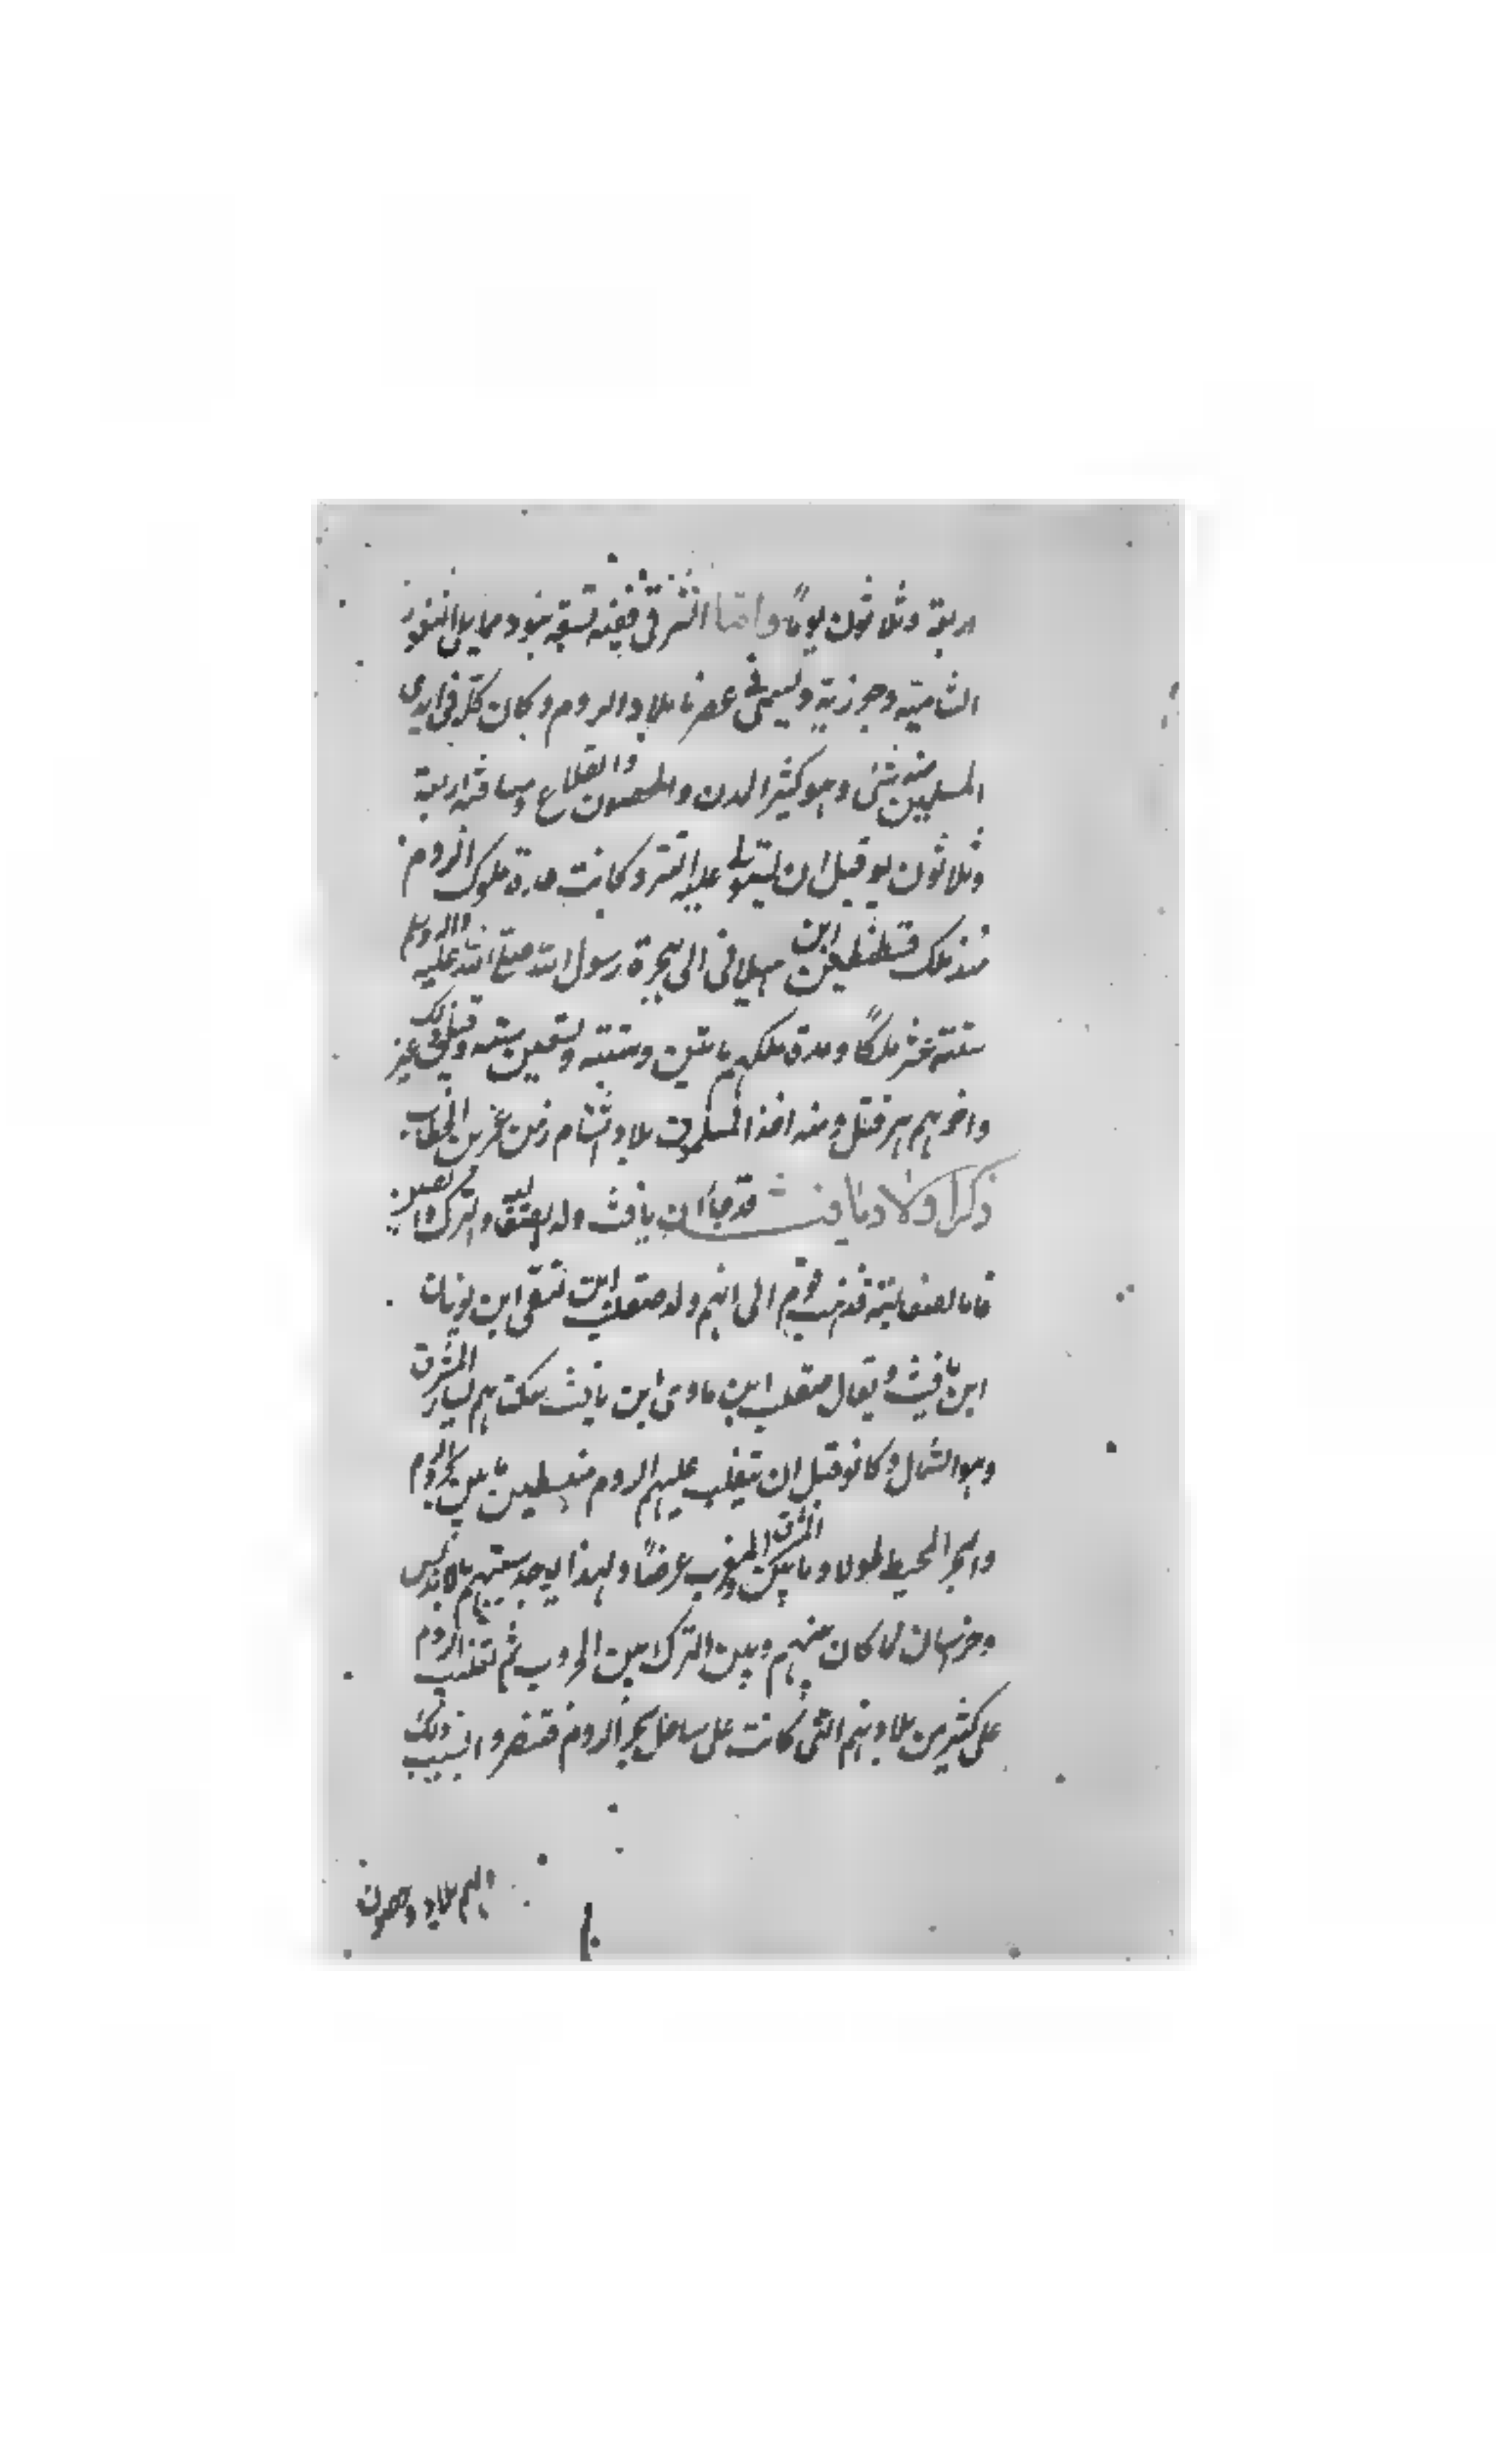 اربعة وثلاثون يومًا واما الشرقى ففيه تسعة بنود مما يلى الثغور
الشامية وجوزية وليسمى فى عصرنا بلاد الروم وكان كله فى ايدى
المسلمين منه شئ وهو كثير المدن والحصون والقلاع ومسافته اربعة
وثلاثون يو قبل ان يستولى عليه التتر وكانت عدة ملوك الروم
منذ ملك قسطنطين ابن هيلانى الى هجرة رسول الله صلى الله عليه واله وسلم
ستة عشر ملكًا ومدة ملكهم مايتين وستة وتسعين سنه وقيل غير ذلك
واخرهم هرقل ومنه اخذ المسلمون بلاد الشام زمن عمر بن الخطاب
ذكر اولاد يافث قد جاأ ان يافث ولد الصقالبه والترك والصين
فاما الصقالبة فذهب قوم الى انهم ولد صقلب ابن لنقى ابن يونان
ابن يافث ويقال صقلب ابن ماذى ابن يافث سكناهم يسار المشرق
وهو الشمال وكانو قبل ان يتغلب عليهم الروم منبسطين ما بين بحر الروم
والبحر المحيط طولا وما بين المشرق والمغرب عرضًا ولهذا يوجد سبيهم بالاندلس
وخراسان لما كان منهم وبين الترك من الحروب ثم تغلب الروم
على كثير من بلادهم التى كانت على ساحل بحر الروم فتنصروا بسبب ذلك
ولهم بلاد وحصون